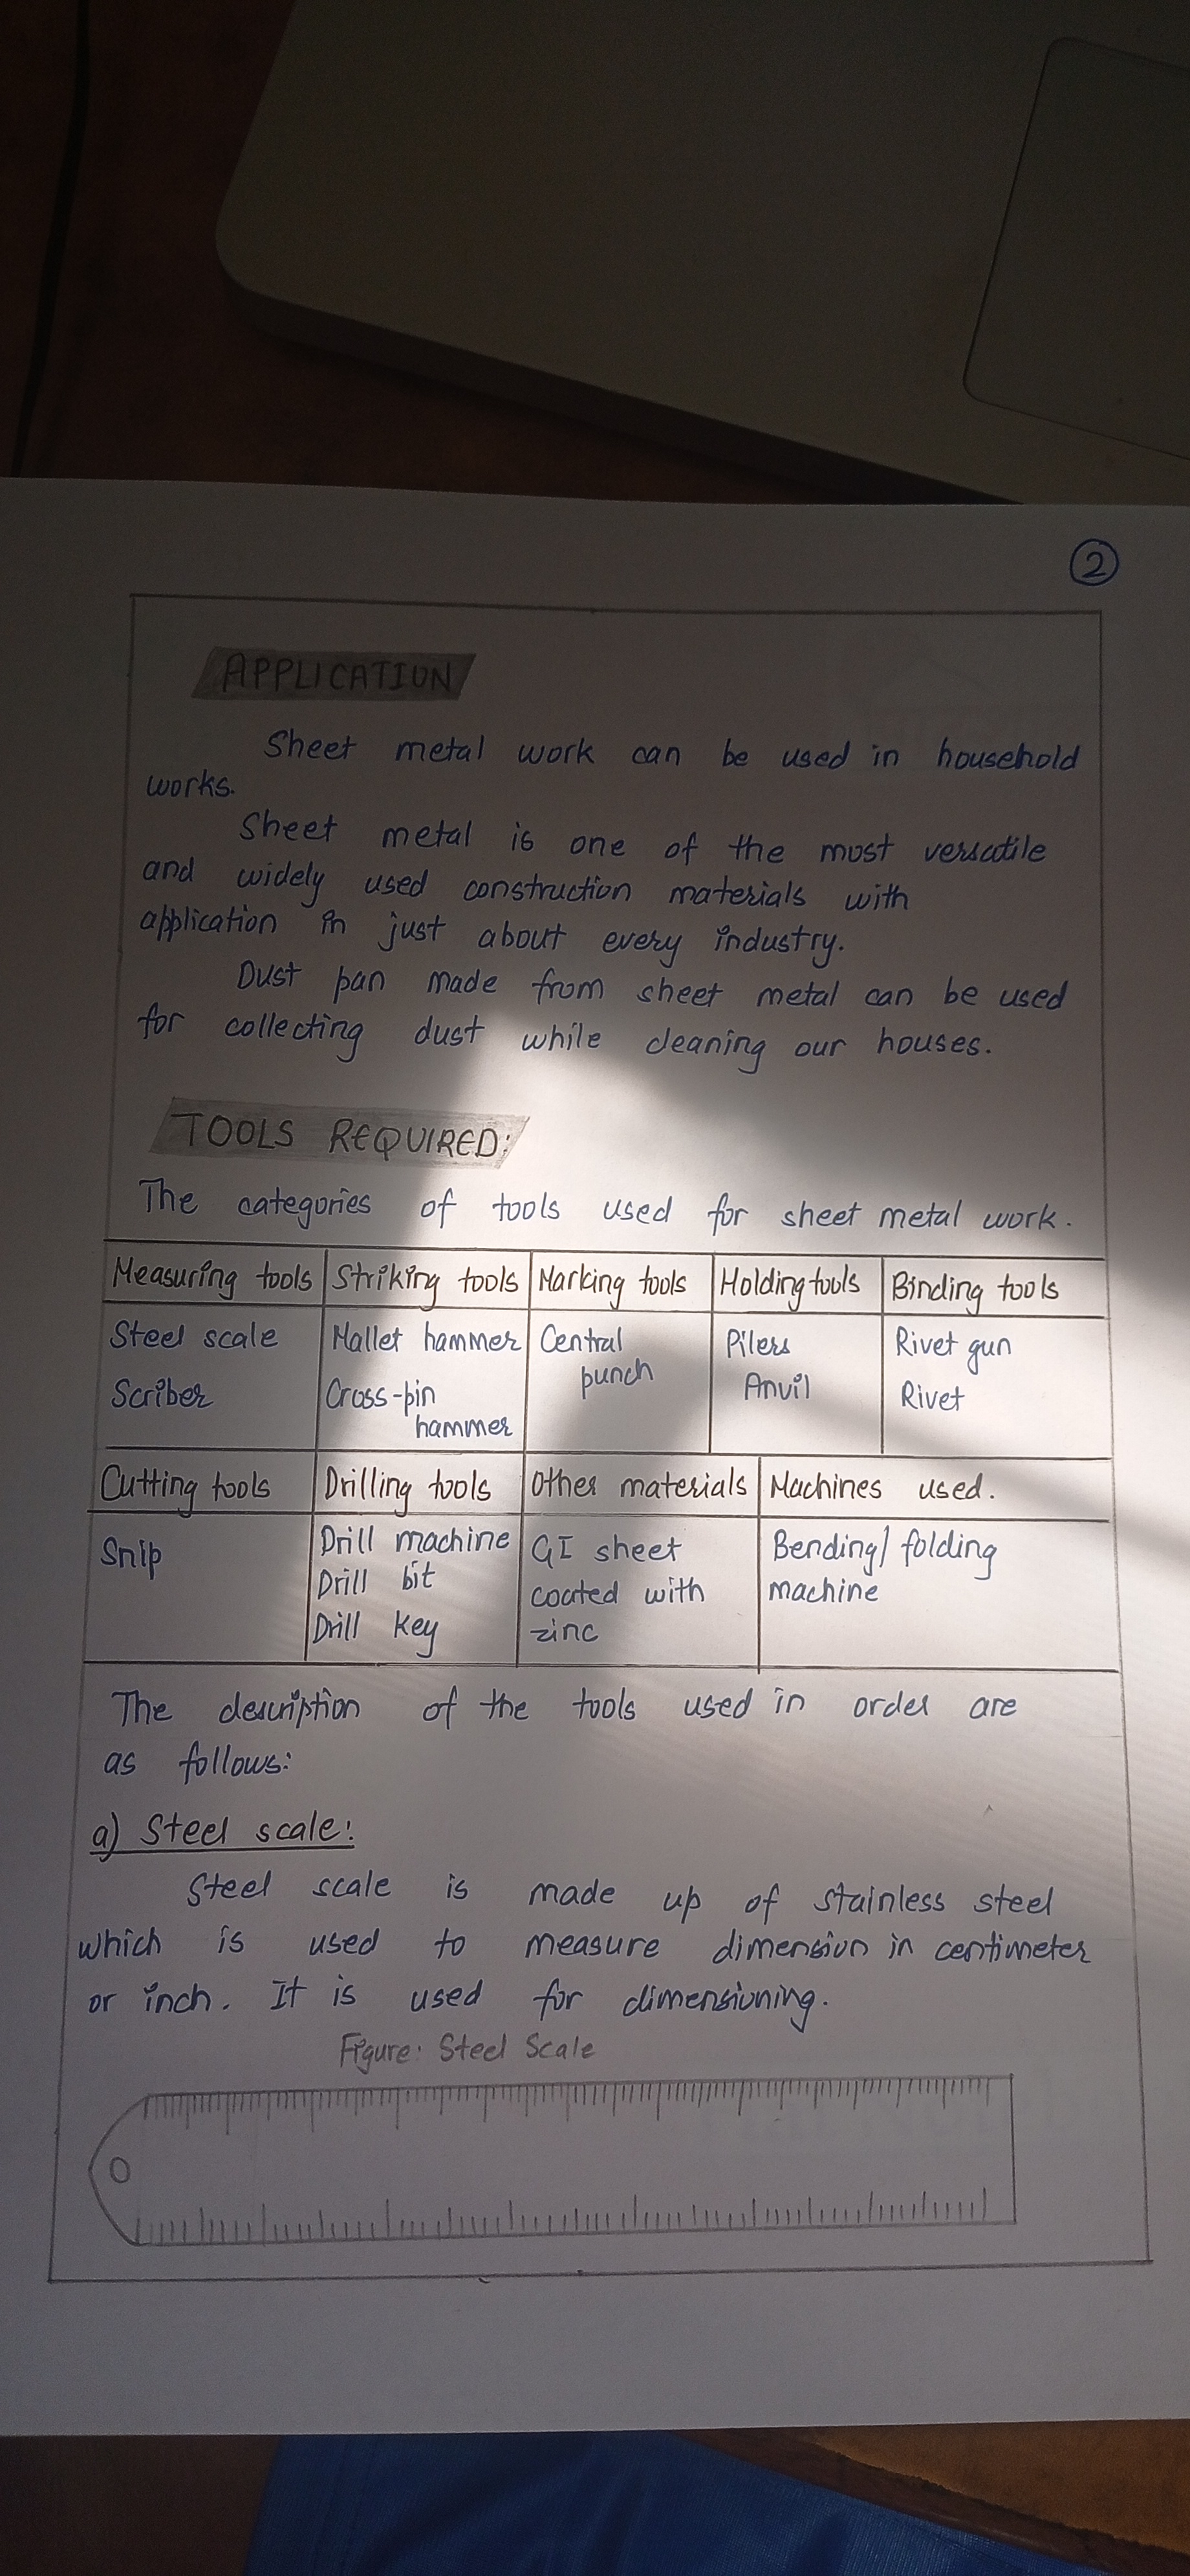 2
APPLICATION
Sheet metal work can be used in household
works.
Sheet metal is one of the most versatile
and widely used construction materials with
application in just about every industry.
Dust pan made from sheet metal can be used
for collecting dust while cleaning our houses.
TOOLS REQUIRED:
The categories of tools used for sheet metal work.
Measuring tools Striking tools Marking tools Holding tools Binding tools
Steel scale Mallet hammer Central Pilers Rivet gun
punch
Scriber Cross-pin Anvil Rivet
hammer
Cutting tools Drilling tools Other materials Machines used.
Snip Drill machine GI sheet Bending/folding
Drill bit coated with machine
Drill key zinc
The description of the tools used in order are
as follows:
a) Steel scale:
Steel scale is made up of stainless steel
which is used to measure dimension in centimeter
or inch. It is used for dimensioning.
Figure: Steel Scale